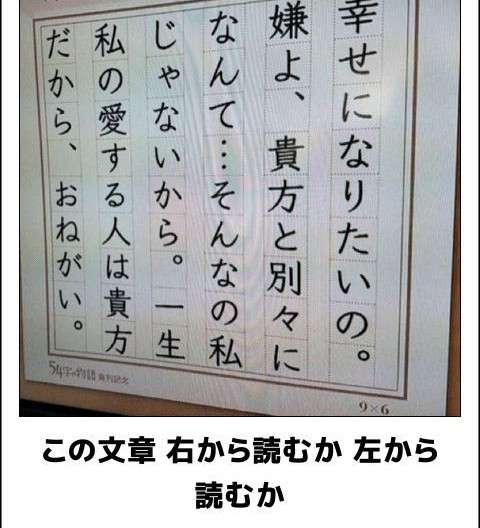 幸せになりたいの。
嫌よ、貴方と別々に
なんて…そんなの私
じゃないから。一生
私の愛する人は貴方
だから、おねがい。
54字の物語 発刊記念
9×6
この文章 右から読むか 左から
読むか